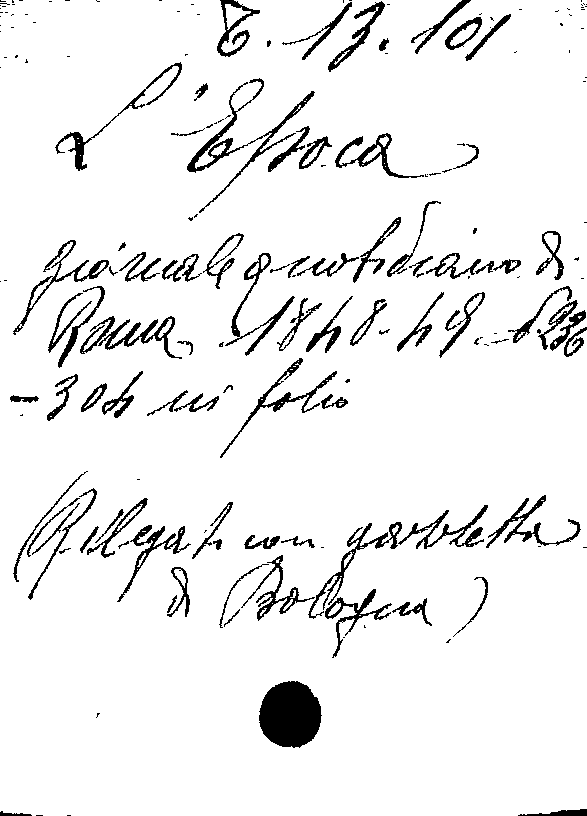 E. 13. 101
L'Epoca
giornale quotidiano di
Roma 1848-49
-304 in folio
(Rilegati con gazzetta
di Bologna)